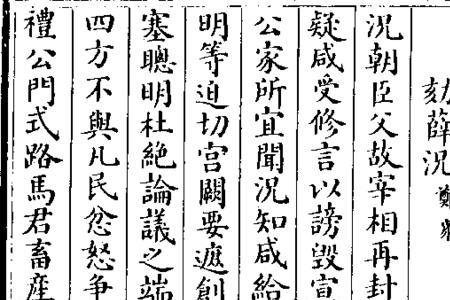 劾薛况
况朝臣父故宰相再封
疑咸受修言以謗毀宣
公家所宜聞况知咸給
明等迫切宮闕要遮創
塞聰明杜絶論議之端
四方不與凡民忿怒爭
禮公門式路馬君畜產